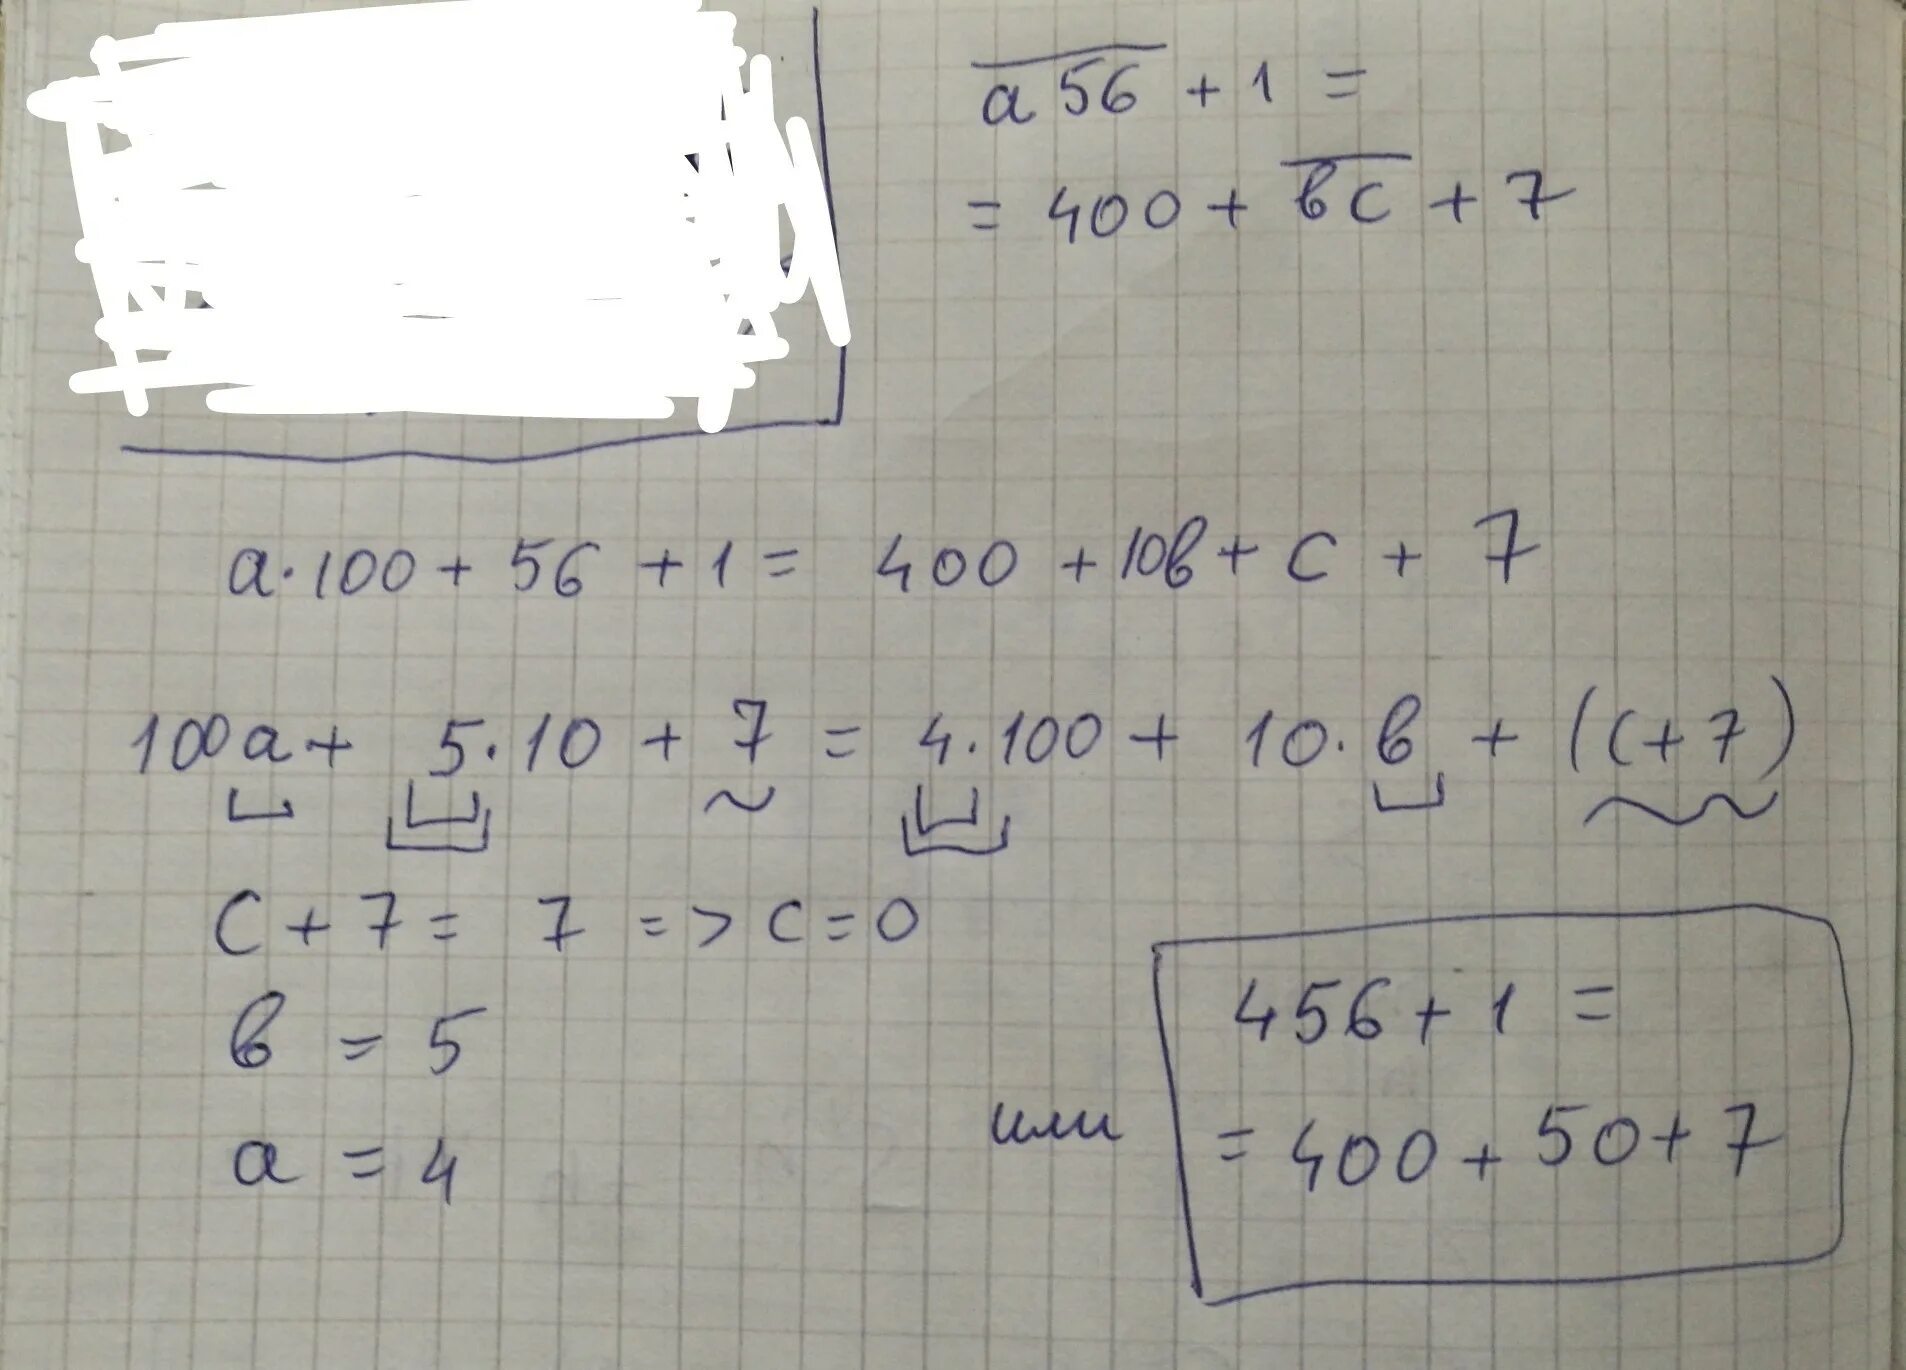 a56 + 1 =
= 400 + вс + 7
a·100 + 56 + 1 = 400 + 10в + с + 7
100a + 5·10 + 7 = 4·100 + 10·в + (с+7)
с + 7 = 7 => с = 0
в = 5
a = 4
или
456 + 1 =
= 400 + 50 + 7